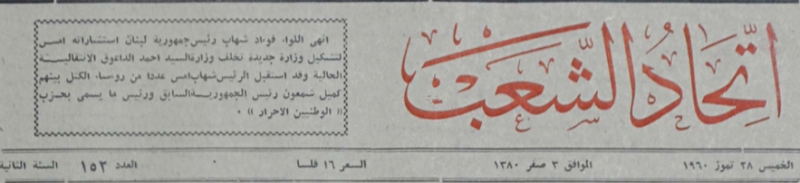 اتحاد الشعب
انهى اللواء فؤاد شهاب رئيس جمهورية لبنان استشاراته امس
لتشكيل وزارة جديدة تخلف وزارة السيد احمد الداعوق الانتقالية
الحالية وقد استقبل الرئيس شهاب امس عددا من رؤساء الكتل بينهم
كميل شمعون رئيس الجمهورية السابق ورئيس ما يسمى بحزب
(( الوطنيين الاحرار )) ٠
الخميس ٢٨ تموز ١٩٦٠ الموافق ٣ صفر ١٣٨٠ السعر ١٦ فلسا العدد ١٥٣ السنة الثانية